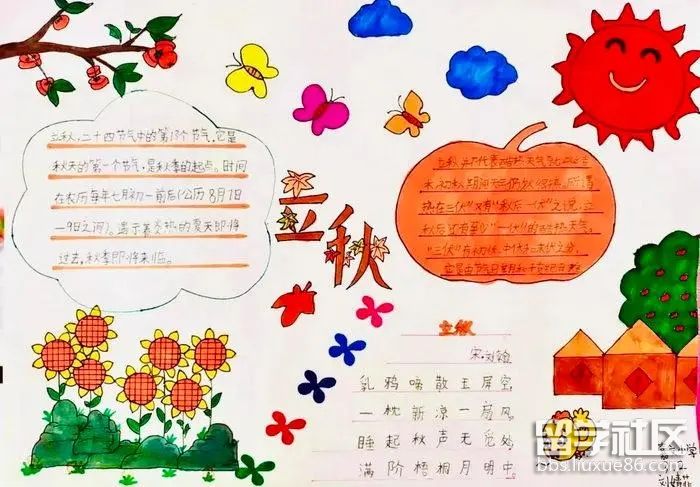 立秋，二十四节气中的第13个节气，它是
秋天的第一个节气，是秋季的起点。时间
在农历每年七月初一前后(公历8月7日
-9日之间)。预示着炎热的夏天即将
过去，秋季即将来临。
立秋
立秋并不代表酷热天气
热在三伏"又有"秋后一伏"之说，立
秋后还有至少"一伏"的酷热天气。
"三伏"有初伏、中伏和末伏之分，
立秋
宋·刘翰
乳鸦啼散玉屏空
一枕新凉一扇风
睡起秋声无觅处
满阶梧桐月明中
留学社区
bbs.liuxue86.com